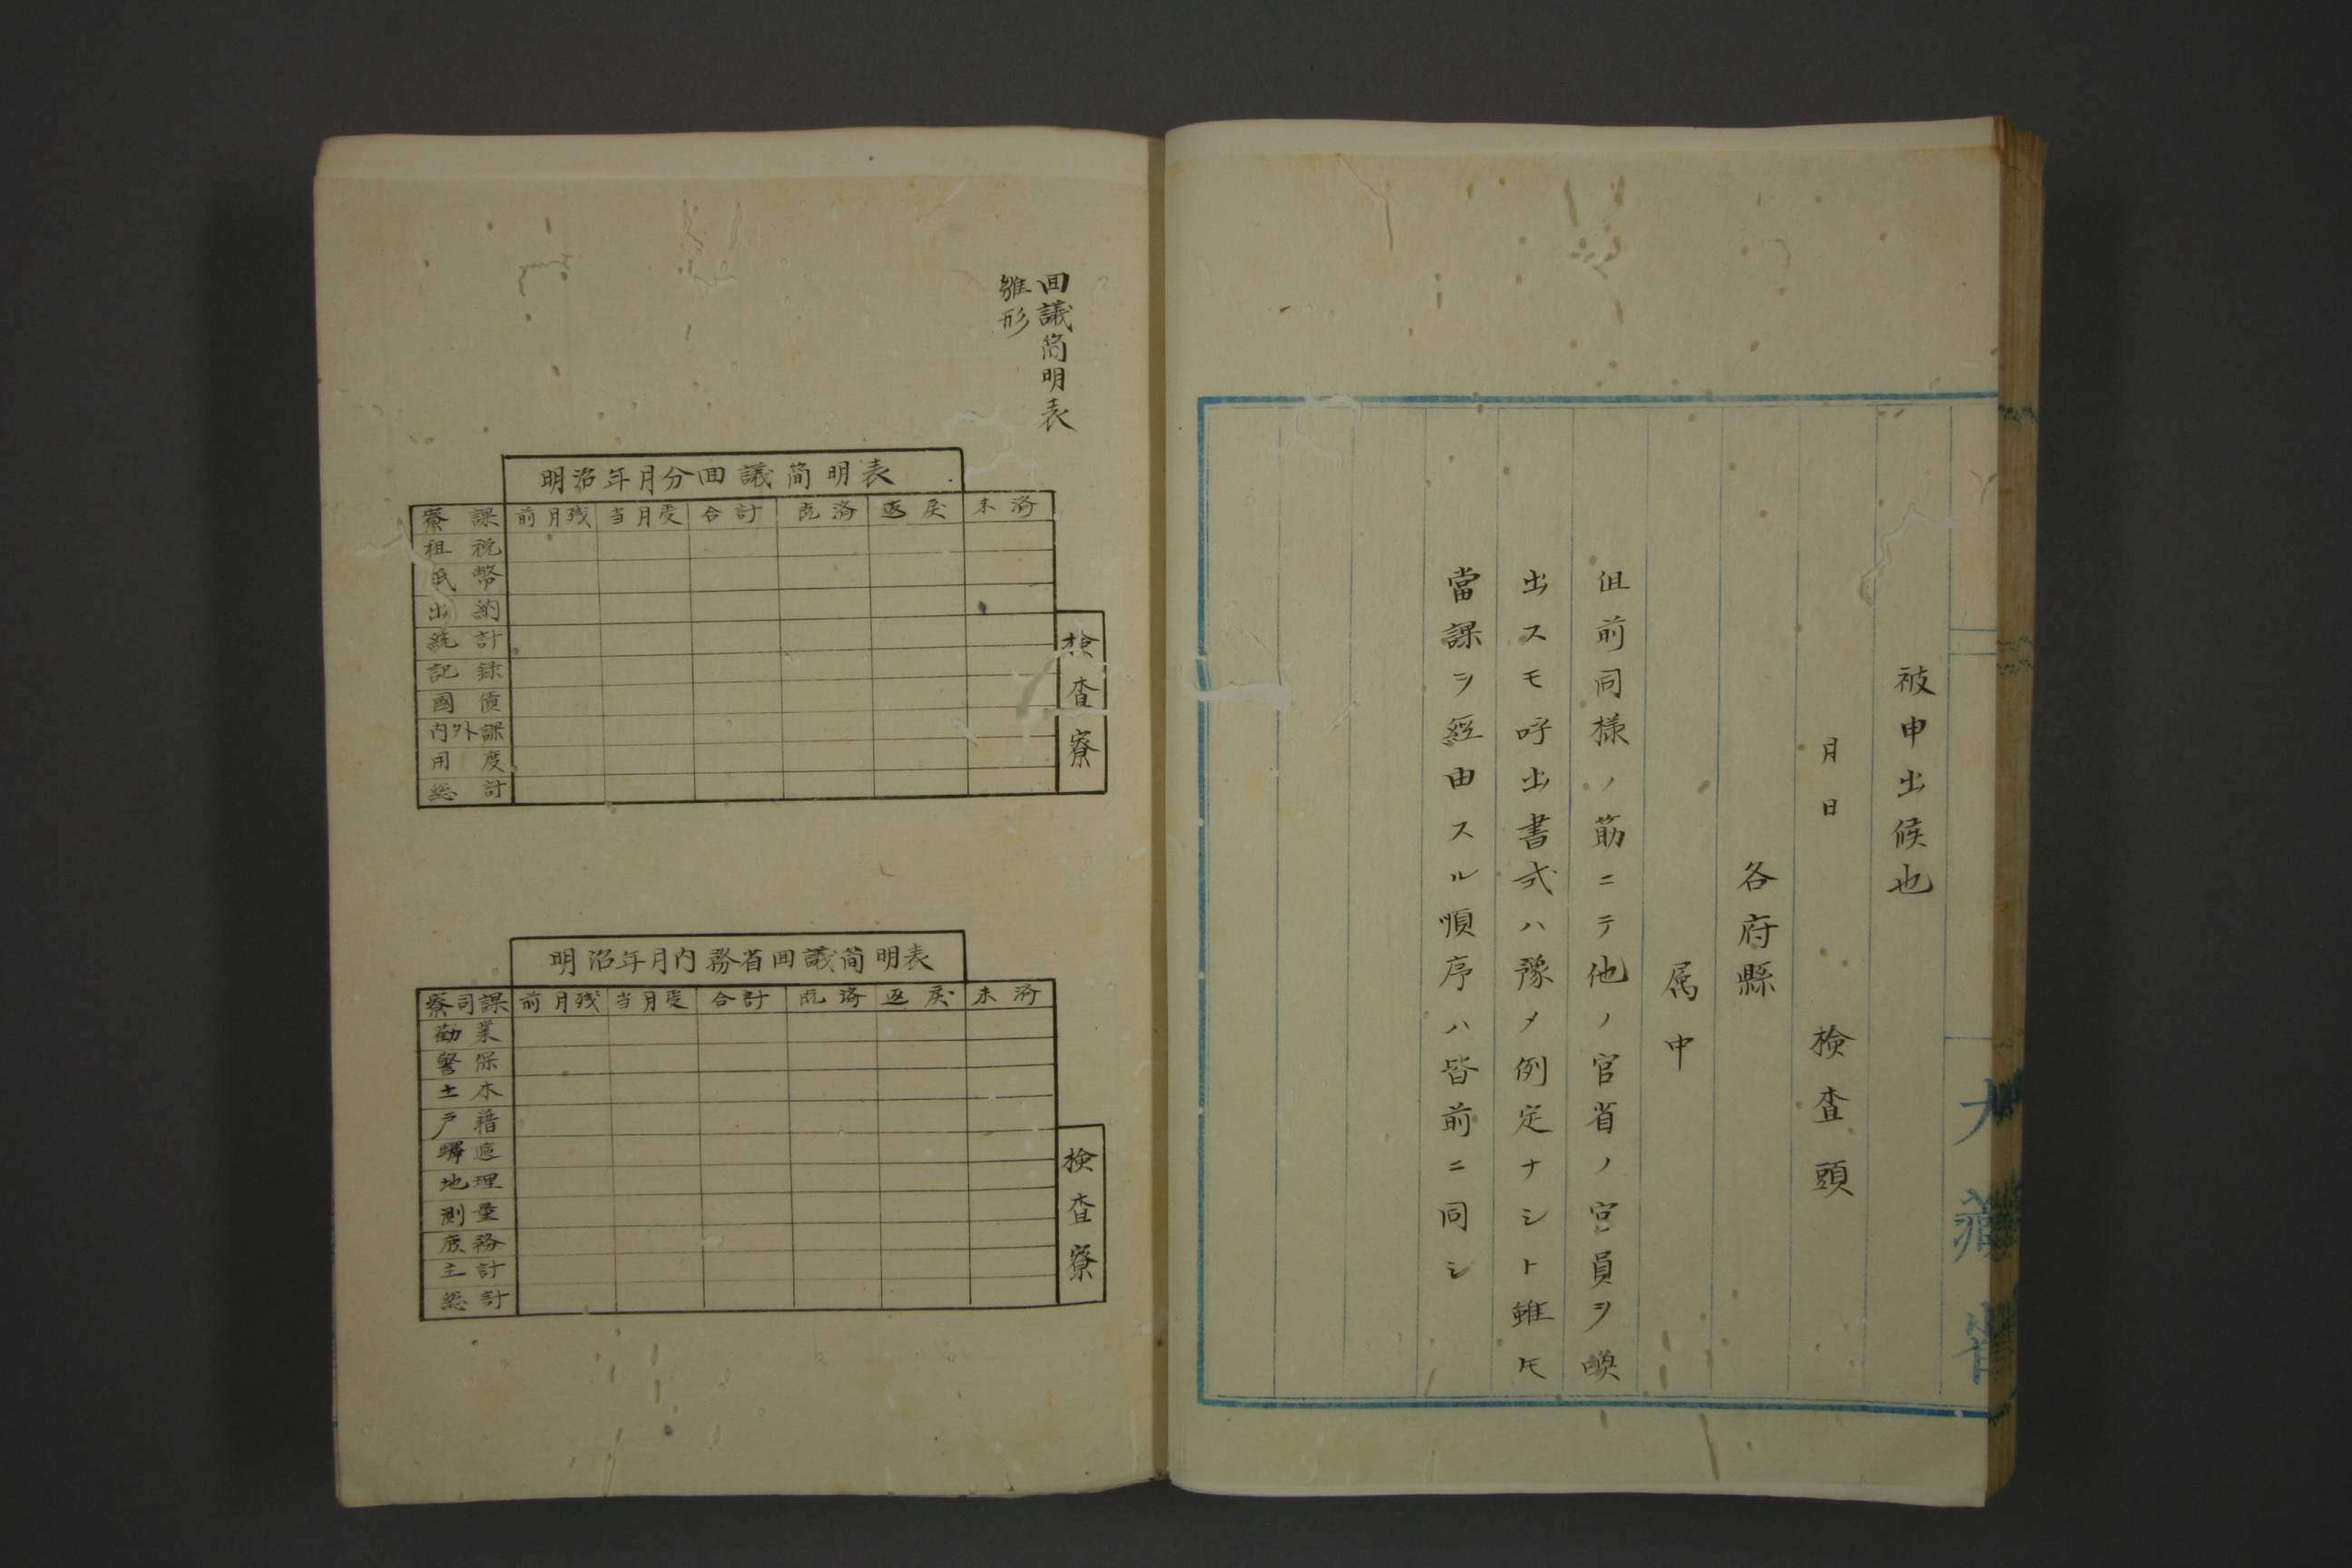 被申出候也
月日 検査頭
各府縣
属中
但前同様ノ筋ニテ他ノ官省ノ官員ヲ喚
出スモ呼出書式ハ豫メ例定ナシト雖モ
當課ヲ經由スル順序ハ皆前ニ同シ
大藏省
回議簡明表
雛形
明治年月分回議簡明表
寮課 前月残 当月受 合計 既済 返戻 未済
租税
紙幣
出納
統計
記録
國債
内外課
用度
総計
検査寮
明治年月内務省回議簡明表
寮司課 前月残 当月受 合計 既済 返戻 未済
勧業
警保
土木
戸籍
驛逓
地理
測量
庶務
主計
総計
検査寮